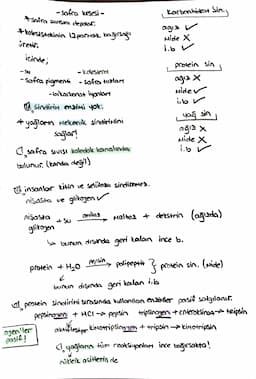 - safra kesesi -
* safra sıvısını depolar.
* kolesistokinin 12 parmak bağırsağı
üretir.
içinde;
- su
- kolesterol
- safra pigmenti
- safra tuzları
- bikarbonat iyonları
sindirim enzimi yok.
* yağların mekanik sindirimini
sağlar!
safra sıvısı koledok kanalında
bulunur. (kanda değil)
karbonhidrat sin.
ağız ✓
mide X
i.b ✓
protein sin
ağız X
mide ✓
i.b ✓
yağ sin
ağız X
mide X
i.b ✓
insanlar kitin ve selüloz sindiremez.
nişasta ve glikojen ✓
nişasta
glikojen
+ su → amilaz maltoz + dekstrin (ağızda)
↳ bunun dışında geri kalan ince b.
protein + H₂O → pepsin polipeptit } protein sin. (mide)
bunun dışında geri kalan i.b
protein sindirimi sırasında kullanılan enzimler pasif salgılanır.
pepsinojen + HCl → pepsin
tripsinojen + enterokinaz → tripsin
kimotripsinojen + tripsin → kimotripsin
ojenler
pasif!
yağların tüm reaksiyonları ince bağırsakta!
nükleik asitlerin de